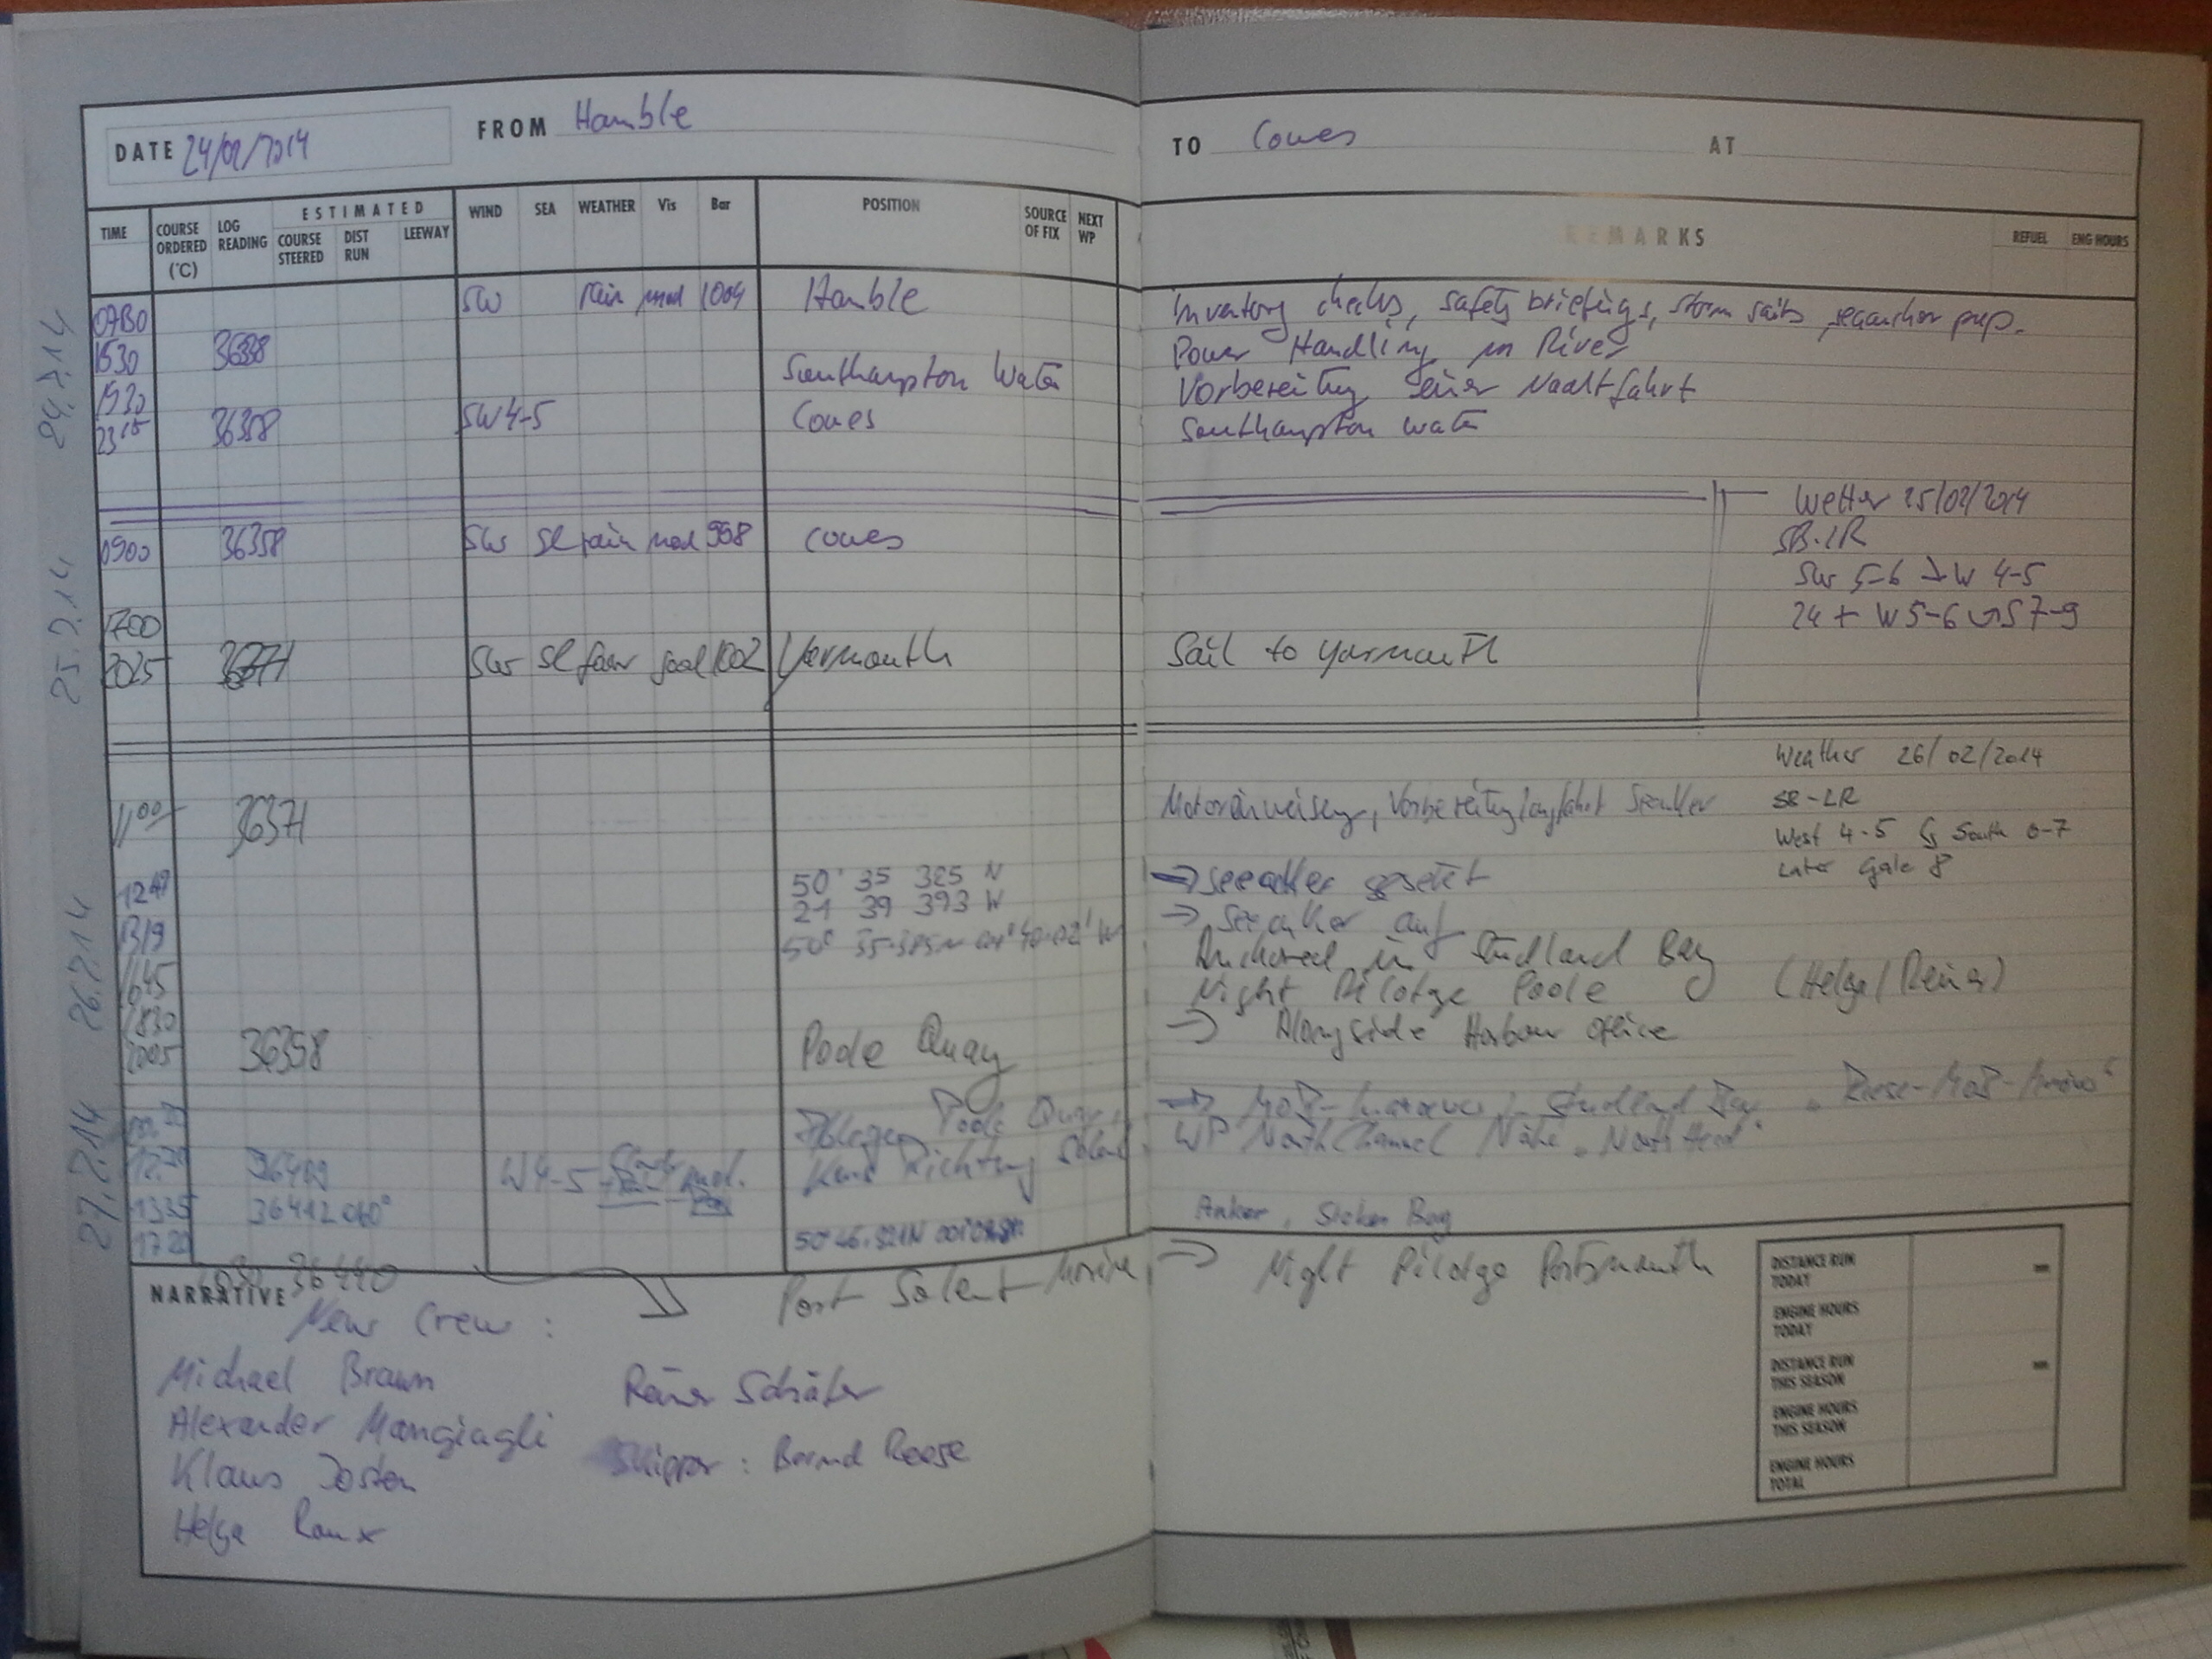 DATE 24/02/2014 FROM Hamble TO Cowes AT
TIME COURSE ORDERED (°C) LOG READING ESTIMATED COURSE STEERED DIST RUN LEEWAY WIND SEA WEATHER Vis Bar POSITION SOURCE OF FIX NEXT WP REMARKS REFUEL ENG HOURS
24.2.14
SW rain mod 1004 Hamble Inventory checks, safety briefings, storm sails, seaanchor prep.
1530 Power Handling in River
1930 Southampton Water Vorbereitung einer Nachtfahrt
2315 36358 SW 4-5 Cowes Southampton Water
Wetter 25/02/2014
25.2.14
0900 36358 SW Sl rain mod 998 Cowes
SB-LR
SW 5-6 W 4-5
24 + W 5-6 S 7-9
1700
2025 SW Sl fair good 1002 Yarmouth Sail to Yarmouth
Weather 26/02/2014
26.2.14
1100 36371 Motoreinweisung, Vorbereitung
SB-LR
West 4-5 South 6-7
Later Gale 8
50° 35 325 N → Seeanker gesetzt
39 393 W
1319 → Seeanker auf
1645 Anchored in Studland Bay
1830 Night Pilotage Poole (Helge/Reiner)
2005 36398 Poole Quay → Alongside Harbour Office
27.2.14
Ablegen Poole Quay, → MoB- Studland Bay
1230 W 4-5 mod. Kurs Richtung Solent WP North Channel Nähe „North Head"
1335 36412 060°
1720 Anker, Stokes Bay
36440 Port Solent Marina → Night Pilotage Portsmouth
NARRATIVE
New Crew:
Michael Braun Reiner Schäfer
Alexander Mangiagli
Klaus Josten Skipper: Bernd Reese
Helge Raux
DISTANCE RUN TODAY
ENGINE HOURS TODAY
DISTANCE RUN THIS SEASON
ENGINE HOURS THIS SEASON
ENGINE HOURS TOTAL